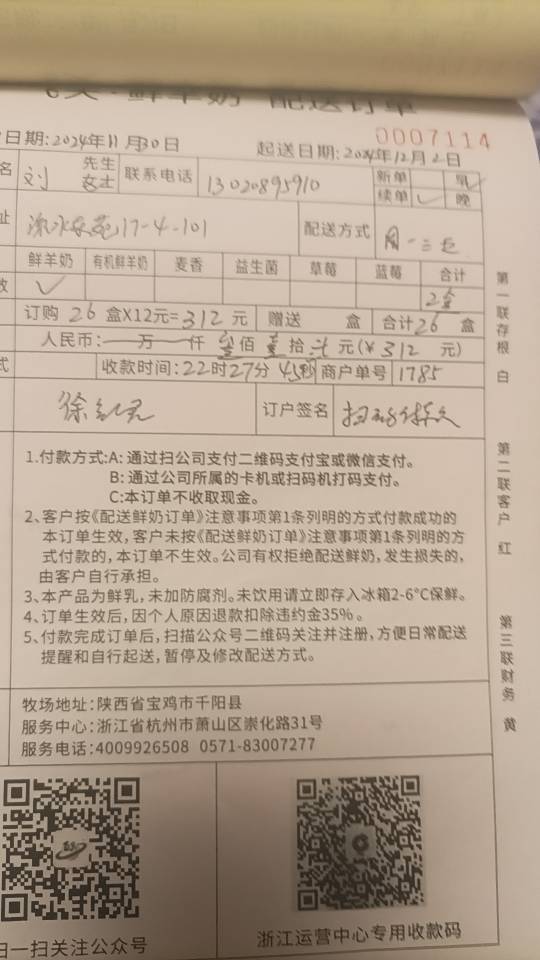 鲜羊奶 配送订单
0007114
日期:2024年11月30日 起送日期:2024年12月2日
名 刘 先生 女士 联系电话 13020895910 新单 早✓
续单 ✓ 晚
址 17-4-101 配送方式 周一三五
鲜羊奶 有机鲜羊奶 麦香 益生菌 草莓 蓝莓 合计
数 ✓ 2盒
订购 26 盒X12元=312 元 赠送 盒 合计26 盒
人民币: 万 仟 叁佰 壹拾 元(¥312 元)
式 收款时间:22时27分45秒 商户单号 1785
徐 订户签名 扫码
1.付款方式:A: 通过扫公司支付二维码支付宝或微信支付。
B: 通过公司所属的卡机或扫码机打码支付。
C:本订单不收取现金。
2、客户按《配送鲜奶订单》注意事项第1条列明的方式付款成功的
本订单生效,客户未按《配送鲜奶订单》注意事项第1条列明的方
式付款的,本订单不生效。公司有权拒绝配送鲜奶,发生损失的,
由客户自行承担。
3、本产品为鲜乳,未加防腐剂。未饮用请立即存入冰箱2-6°C保鲜。
4、订单生效后,因个人原因退款扣除违约金35%。
5、付款完成订单后,扫描公众号二维码关注并注册,方便日常配送
提醒和自行起送,暂停及修改配送方式。
牧场地址:陕西省宝鸡市千阳县
服务中心:浙江省杭州市萧山区崇化路31号
服务电话:4009926508 0571-83007277
扫一扫关注公众号
浙江运营中心专用收款码
第一联存根 白
第二联客户 红
第三联财务 黄